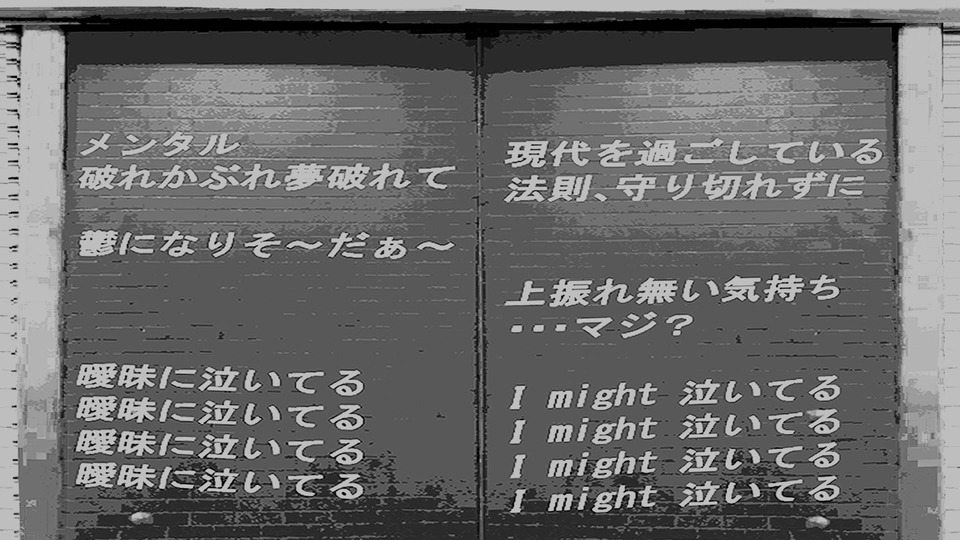 メンタル
破れかぶれ夢破れて
鬱になりそ～だぁ～
曖昧に泣いてる
曖昧に泣いてる
曖昧に泣いてる
曖昧に泣いてる
現代を過ごしている
法則、守り切れずに
上振れ無い気持ち
・・・マジ？
I might 泣いてる
I might 泣いてる
I might 泣いてる
I might 泣いてる